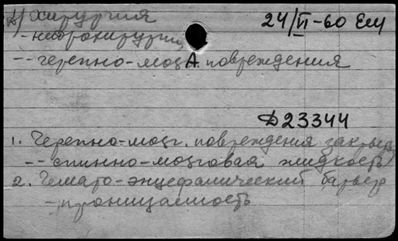 Д) Хирургия 24/VI-60 Ем
- нейрохирургия
-- черепно-мозг. повреждения
А
Д23344
1. Черепно-мозг. повреждения закрыт.
-- спинно-мозговая жидкость
2. Гемато-энцефалический барьер
- проницаемость